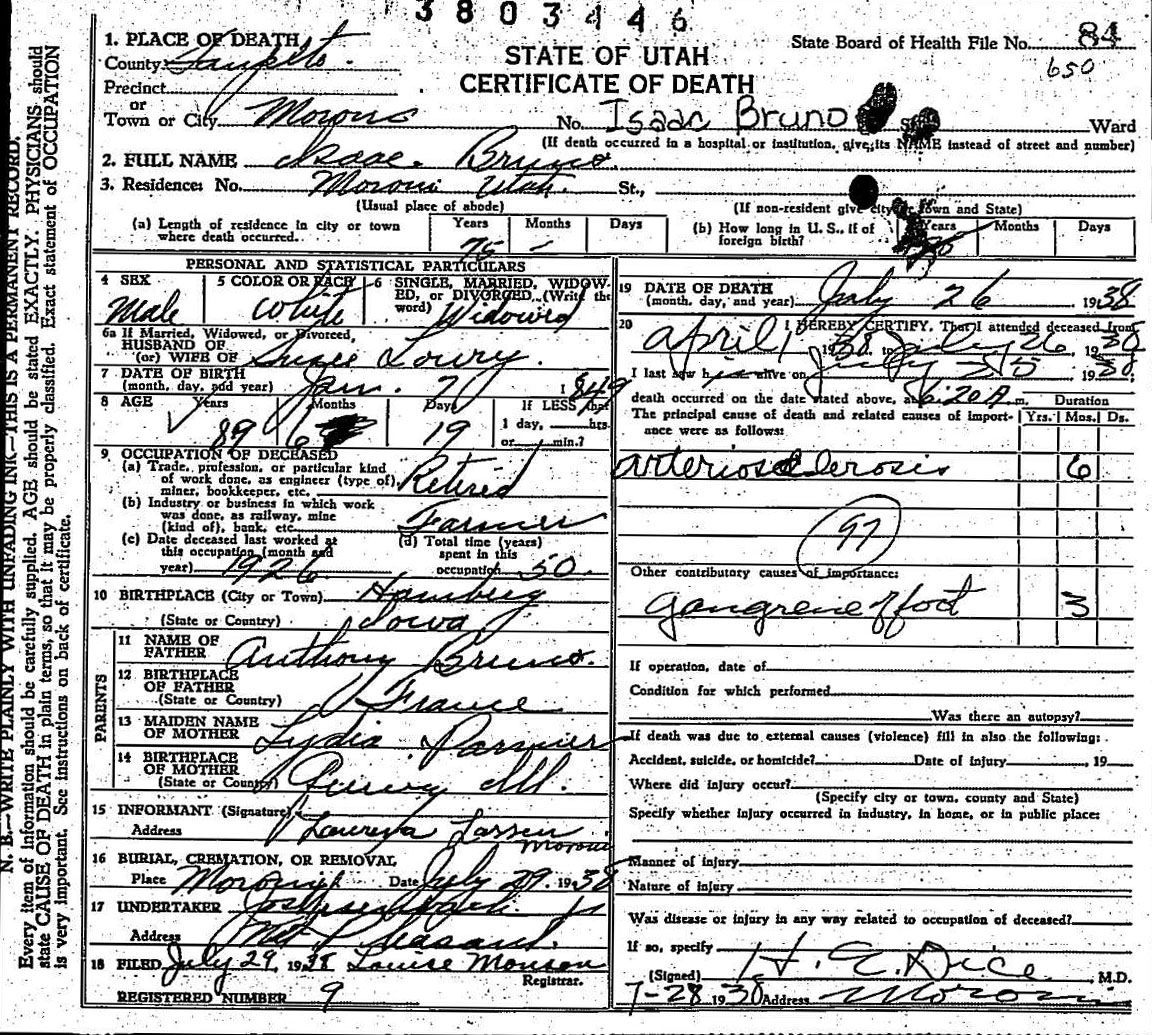 3803446
1. PLACE OF DEATH
County Sanpete.
Precinct
or
Town or City Moroni No. Isaac Bruno St. Ward
STATE OF UTAH
CERTIFICATE OF DEATH
State Board of Health File No. 84
650
(If death occurred in a hospital or institution, give its NAME instead of street and number)
2. FULL NAME Isaac Bruno.
3. Residence: No. Moroni Utah. St.,
(Usual place of abode)
(If non-resident give city or town and State)
(a) Length of residence in city or town where death occurred.
Years Months Days
75 -
(b) How long in U. S., if of foreign birth?
Years Months Days
PERSONAL AND STATISTICAL PARTICULARS
4 SEX
Male
5 COLOR OR RACE
White
6 SINGLE, MARRIED, WIDOW-
ED, or DIVORCED (Write the
word) Widowed
6a If Married, Widowed, or Divorced,
HUSBAND OF
(or) WIFE OF Susie Lowry.
7 DATE OF BIRTH
(month, day, and year) Jan. 7 1849
8 AGE Years Months Days If LESS than
1 day, hrs.
or min.?
89 6 19
9 OCCUPATION OF DECEASED
(a) Trade, profession, or particular kind
of work done, as engineer (type of),
miner, bookkeeper, etc. Retired
(b) Industry or business in which work
was done, as railway, mine
(kind of), bank, etc. Farmer
(c) Date deceased last worked at
this occupation (month and
year) 1926
(d) Total time (years)
spent in this
occupation 50.
10 BIRTHPLACE (City or Town) Hamberg
(State or Country) Iowa
PARENTS
11 NAME OF
FATHER Anthony Bruno.
12 BIRTHPLACE
OF FATHER
(State or Country) France
13 MAIDEN NAME
OF MOTHER Lydia Parmer
14 BIRTHPLACE
OF MOTHER
(State or Country) Quincy Ill.
15 INFORMANT (Signature) Laureya Lassen
Address Moroni
16 BURIAL, CREMATION, OR REMOVAL
Place Moroni Date July 29. 1938
17 UNDERTAKER
Address Mt. Pleasant.
18 FILED July 29, 1938 Louise Monson
Registrar.
REGISTERED NUMBER 9
19 DATE OF DEATH
(month, day, and year) July 26 1938
20 I HEREBY CERTIFY, That I attended deceased from
April 1 1938 to July 26, 1938
I last saw him alive on July 25 1938
death occurred on the date stated above, at 6:20 A. m. Duration
The principal cause of death and related causes of import-
ance were as follows: Yrs. Mos. Ds.
arteriosclerosis 6
97
Other contributory causes of importance:
Gangrene of foot 3
If operation, date of
Condition for which performed
Was there an autopsy?
If death was due to external causes (violence) fill in also the following:
Accident, suicide, or homicide? Date of injury , 19
Where did injury occur?
(Specify city or town, county and State)
Specify whether injury occurred in industry, in home, or in public place:
Manner of injury
Nature of injury
Was disease or injury in any way related to occupation of deceased?
If so, specify
(Signed) H. E. Dice M.D.
7-28 1938 Address Moroni
N. B.—WRITE PLAINLY WITH UNFADING INK—THIS IS A PERMANENT RECORD.
Every item of information should be carefully supplied. AGE should be stated EXACTLY. PHYSICIANS should
state CAUSE OF DEATH in plain terms, so that it may be properly classified. Exact statement of OCCUPATION
is very important. See instructions on back of certificate.